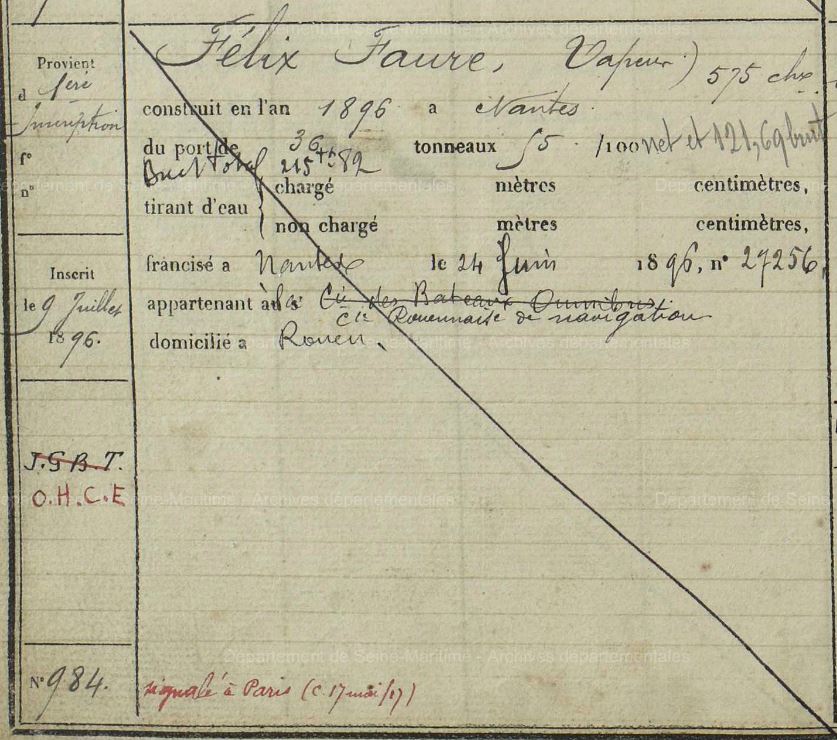 Félix Faure, Vapeur) 575 chx
Provient
d 1ère
Inscription
fº
nº
construit en l'an 1896 a Nantes.
du port de 36 tonneaux 55 /100 net et 121,69 brut
Brut total 215 tx 82
tirant d'eau
chargé mètres centimètres,
non chargé mètres centimètres,
francisé a Nantes le 24 Juin 1896, nº 27256,
Inscrit
le 9 Juillet
1896.
appartenant à la Cie des Bateaux Omnibus
Cie Rouennaise de navigation
domicilié a Rouen.
J.G.B.T.
O.H.C.E
Nº 984.
signalé à Paris (C. 17 mai/07)
Département de Seine-Maritime - Archives départementales